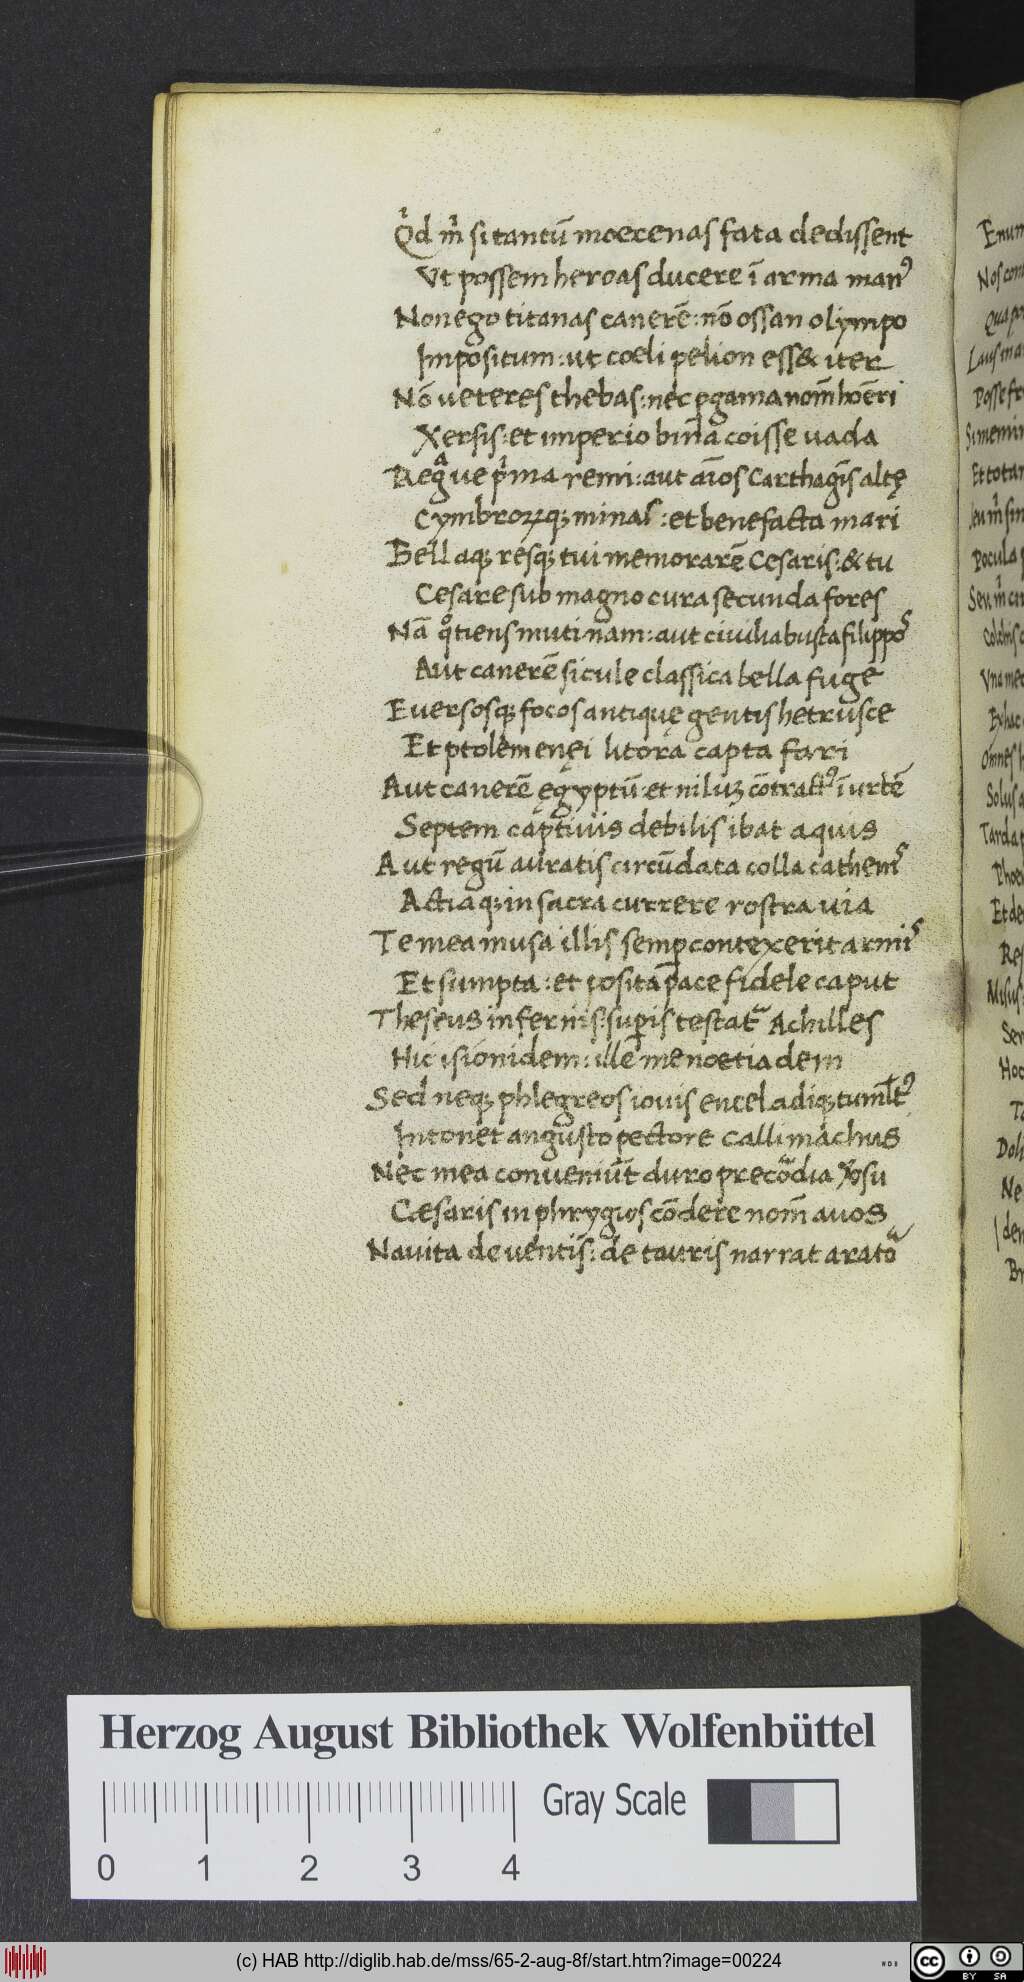 Qͥd m̍ si tantū moecenas fata dedissent
Vt possem heroas ducere ī arma manꝰ
Non ego titanas canerē: nō ossan olympo
Impositum: ut coeli pelion ess& iter
Nō veteres thebas: nec pgama nom̄ hoēri
Xersis: et imperio bina coisse uada
Regᷓue pͥma remi: aut aīos Carthagīs altę
Cymbroꝝqꝫ minas: et benefacta mari
Bellaqꝫ resqꝫ tui memorarē Cesaris: & tu
Cesare sub magno cura secunda fores
Nā qͦtiens mutinam: aut ciuilia busta filippos
Aut canerē sicule classica bella fuge
Euersosqꝫ focos antique gentis hetrusce
Et ptolemenęi litora capta fari
Aut canerē ęgyptū et niluꝫ cōtractꝰ ī urbē
Septem captiuis debilis ibat aquis
Aut regū auratis circūdata colla cathenis
Actiaqꝫ in sacra currere rostra uia
Te mea musa illis semꝑ contexerit armis
Et sumpta: et posita pace fidele caput
Theseus infernis: suꝑis testat᷑ Achilles
Hic isionidem: ille menoetiadem
Sed neqꝫ phlegreos iouis enceladiqꝫ tuml̄tꝰ
Intonet angusto pectore Callimachus
Nec mea conueniūt duro precordia
Cæsaris in phrygios cōdere nom̄ auos
Nauita de uentis: de tauris narrat arator
Enum
Nos con
Qua po
Laus in a
Posse fr
Si memin
Et totam
Seu m̍ sin
Pocula
Seu m̍ cir
Colchis
Vna me
Exhac
Omnes h
Solus a
Tarda p
Phoe
Et de
Res
Misus
Sen
Hoc
Ta
Doli
Ne
Iden
Br
Herzog August Bibliothek Wolfenbüttel
0 1 2 3 4
Gray Scale
(c) HAB http://diglib.hab.de/mss/65-2-aug-8f/start.htm?image=00224
cc BY SA